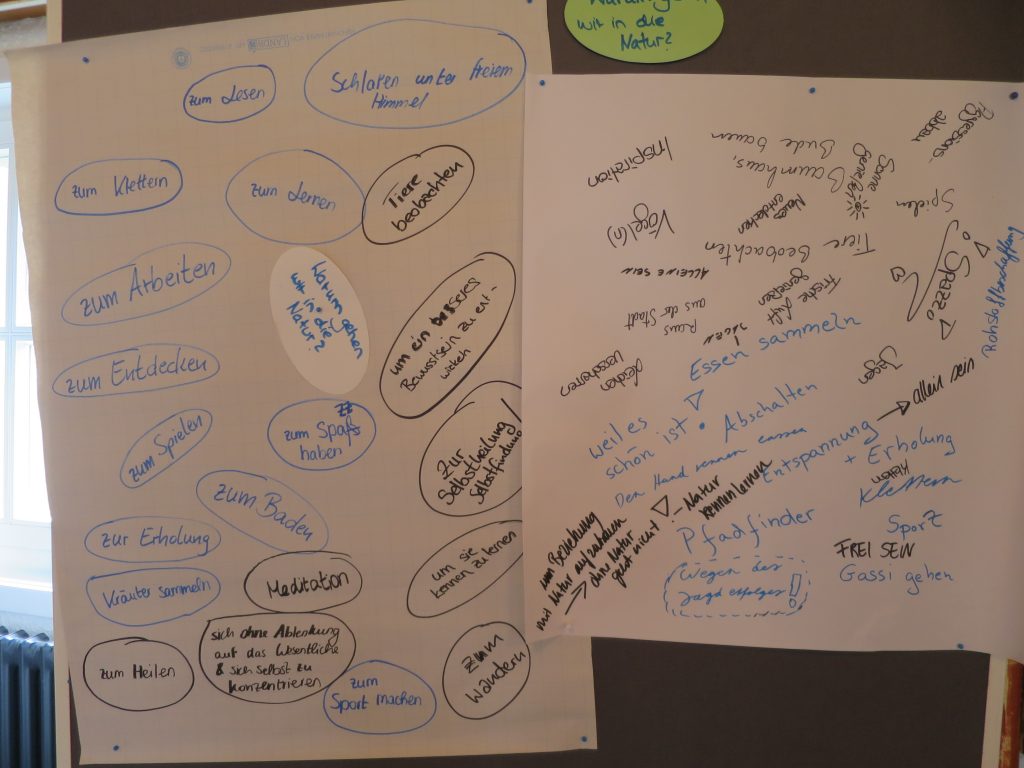 zum Lesen
Schlafen unter freiem
Himmel
zum Klettern
zum Lernen
Tiere
beobachten
zum Arbeiten
Warum gehen
wir in die
Natur?
um ein besseres
Bewusstsein zu ent-
wickeln
zum Entdecken
zum Spielen
zum Spaß
haben
zur
Selbstheilung/
Selbstfindung
zum Baden
zur Erholung
um sie
kennen zu lernen
Kräuter sammeln
Meditation
zum Heilen
sich ohne Ablenkung
auf das Wesentliche
& sich selbst zu
konzentrieren
zum
Sport machen
zum
Wandern
wir in die
Natur?
Aggressions-
abbau
Inspiration
Baumhaus,
Bude bauen
Sonne
genießen
Spielen
Vögel(n)
Neues
entdecken
Tiere Beobachten
ALLEINE SEIN
Spazzo
Rohstoffbeschaffung
Raus
aus der Stadt
Frische Luft
genießen
Essen sammeln
Jagen
weil es
schön ist • Abschalten
Den Hund rennen lassen
Entspannung → allein sein
+ Erholung
Klettern
Natur
kennenlernen
um Beziehung
mit Natur aufzubauen
→ ohne Natur
geht nicht!
Pfadfinder
Sporz
FREI SEIN
Gassi gehen
Wegen des
Jagderfolges!